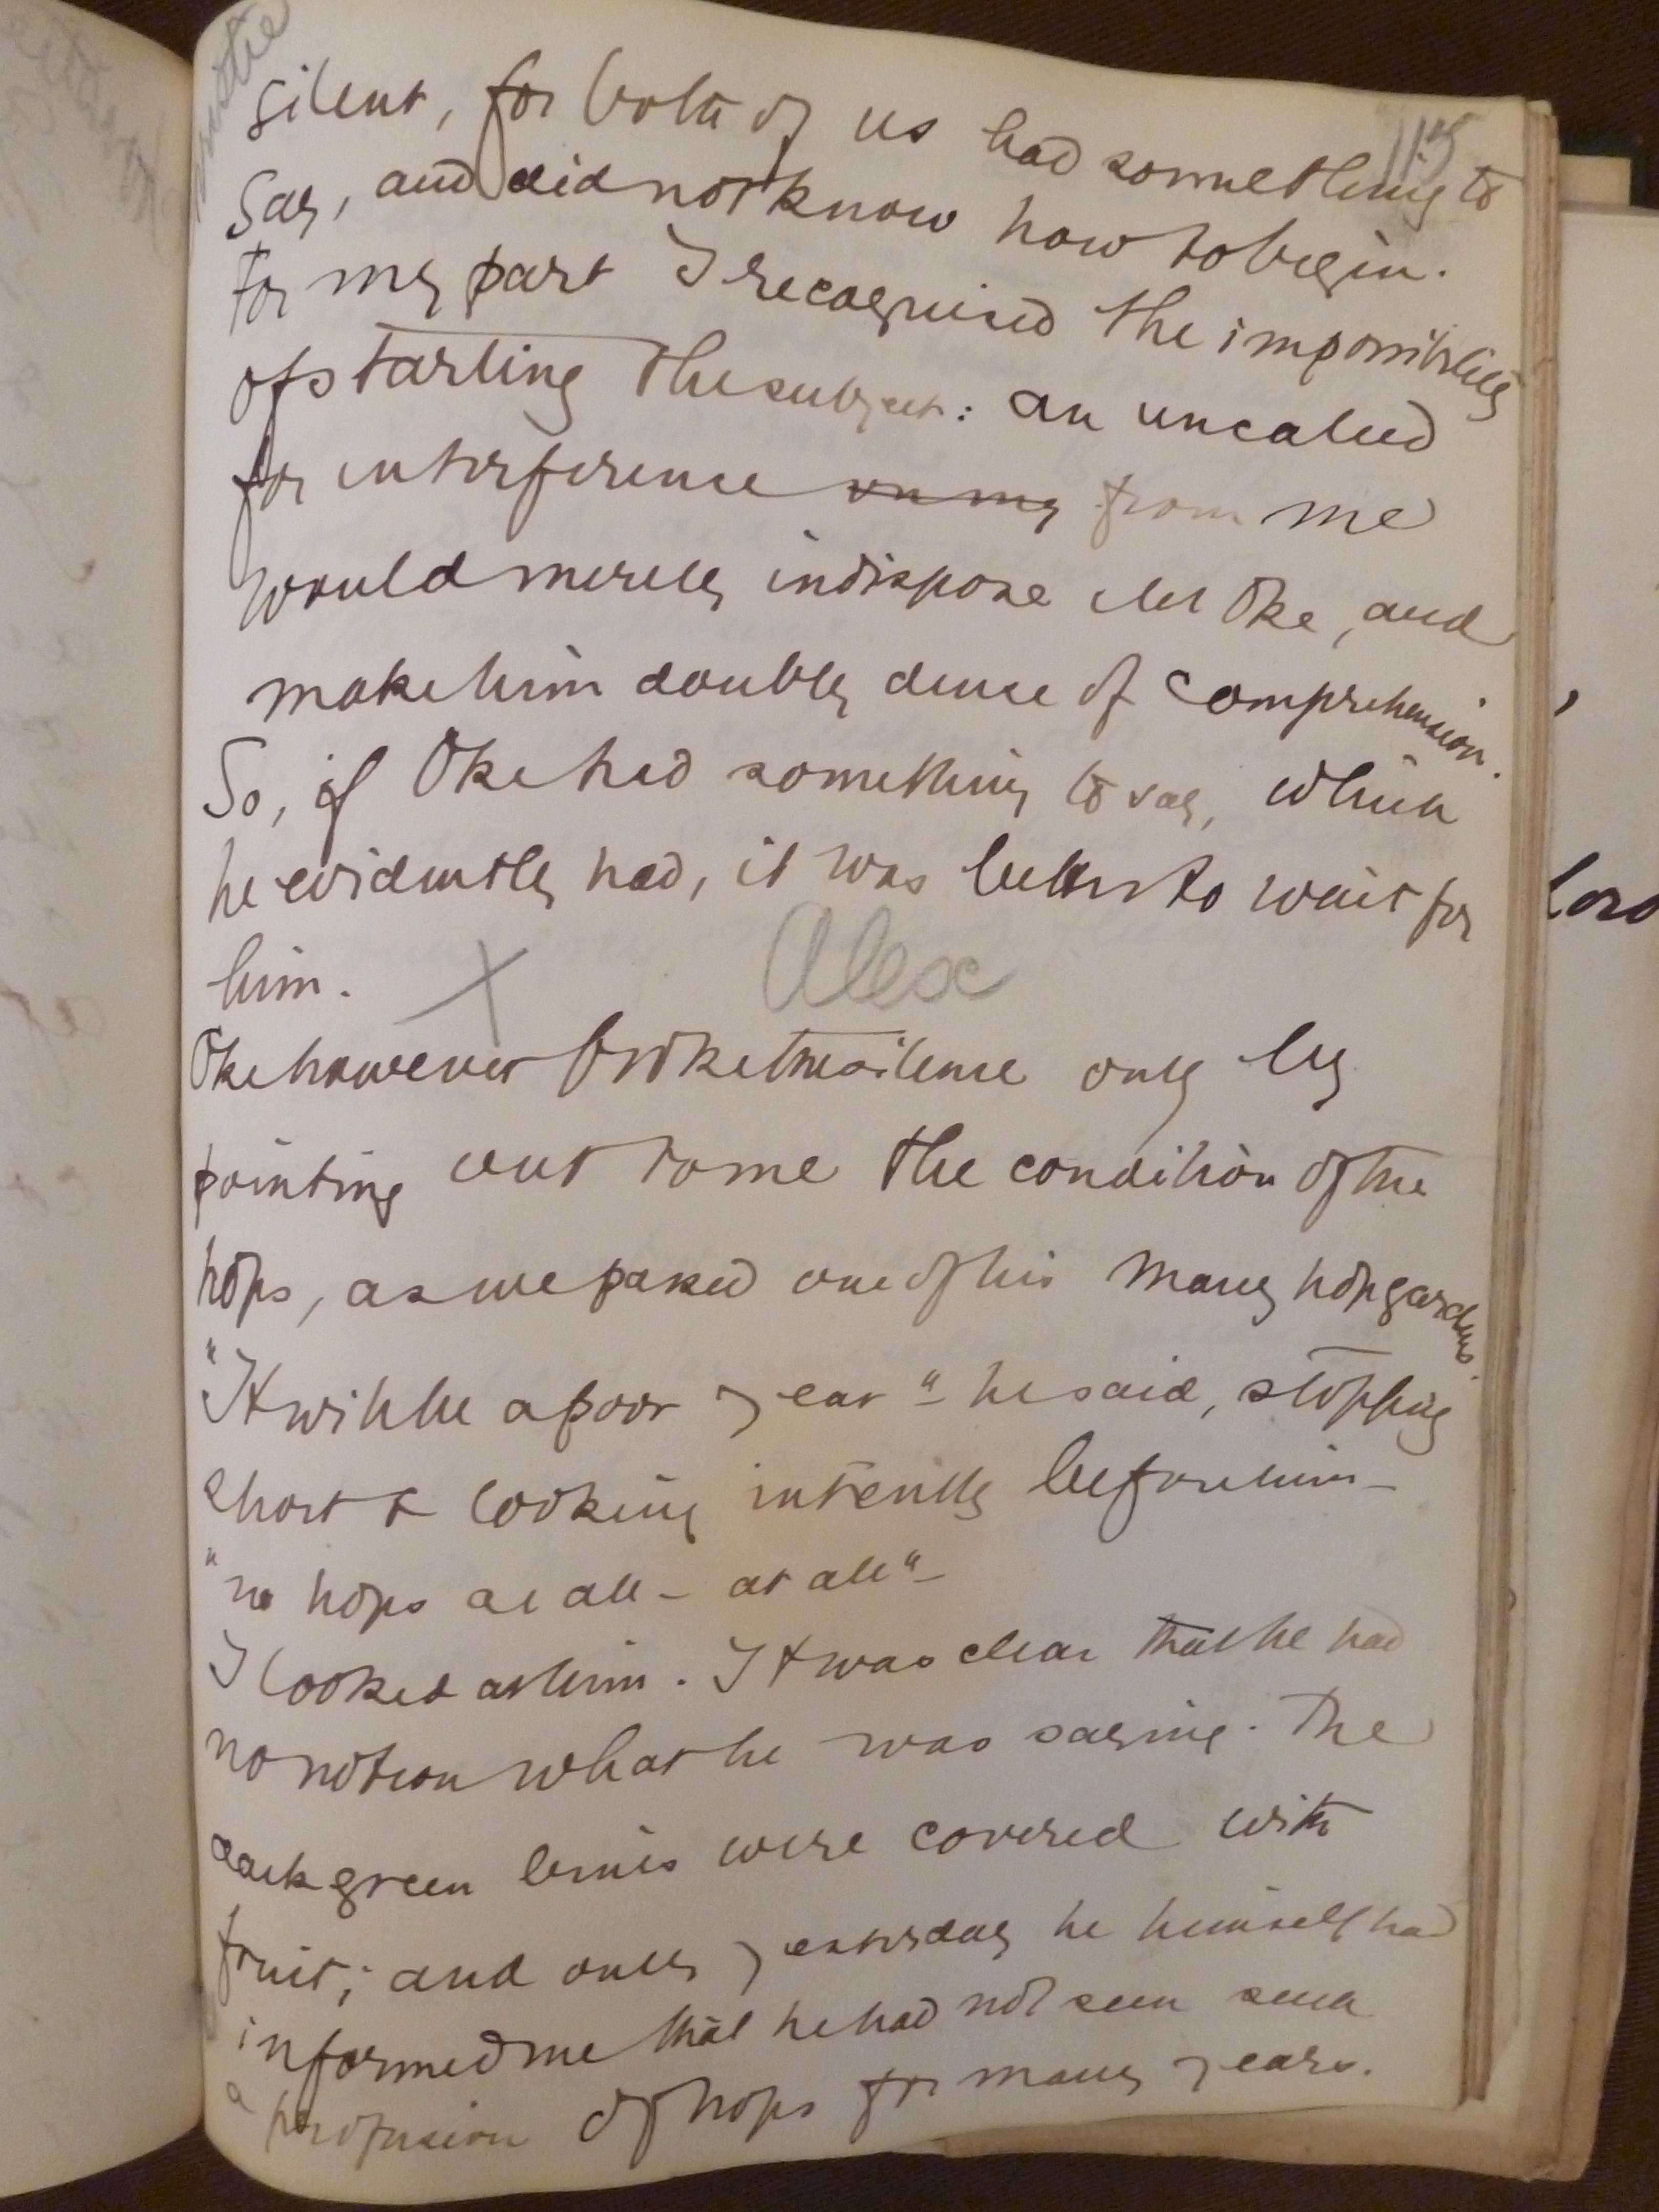 115
silent, for both of us had something to
say, and did not know how to begin.
For my part I recognised the impossibility
of starting the subject: an uncalled
for interference on my from me
would merely indispose Mr Oke, and
make him doubly dense of comprehension.
So, if Oke had something to say, which
he evidently had, it was better to wait for
him. X Alex
Oke however broke the silence only by
pointing out to me the condition of the
hops, as we passed one of his many hopgardens.
"It will be a poor year" - he said, stopping
short & looking intently before him -
"no hops at all - at all" -
I looked at him. It was clear that he had
no notion what he was saying. The
dark green bines were covered with
fruit; and only yesterday he himself had
informed me that he had not seen such
a profusion of hops for many years.